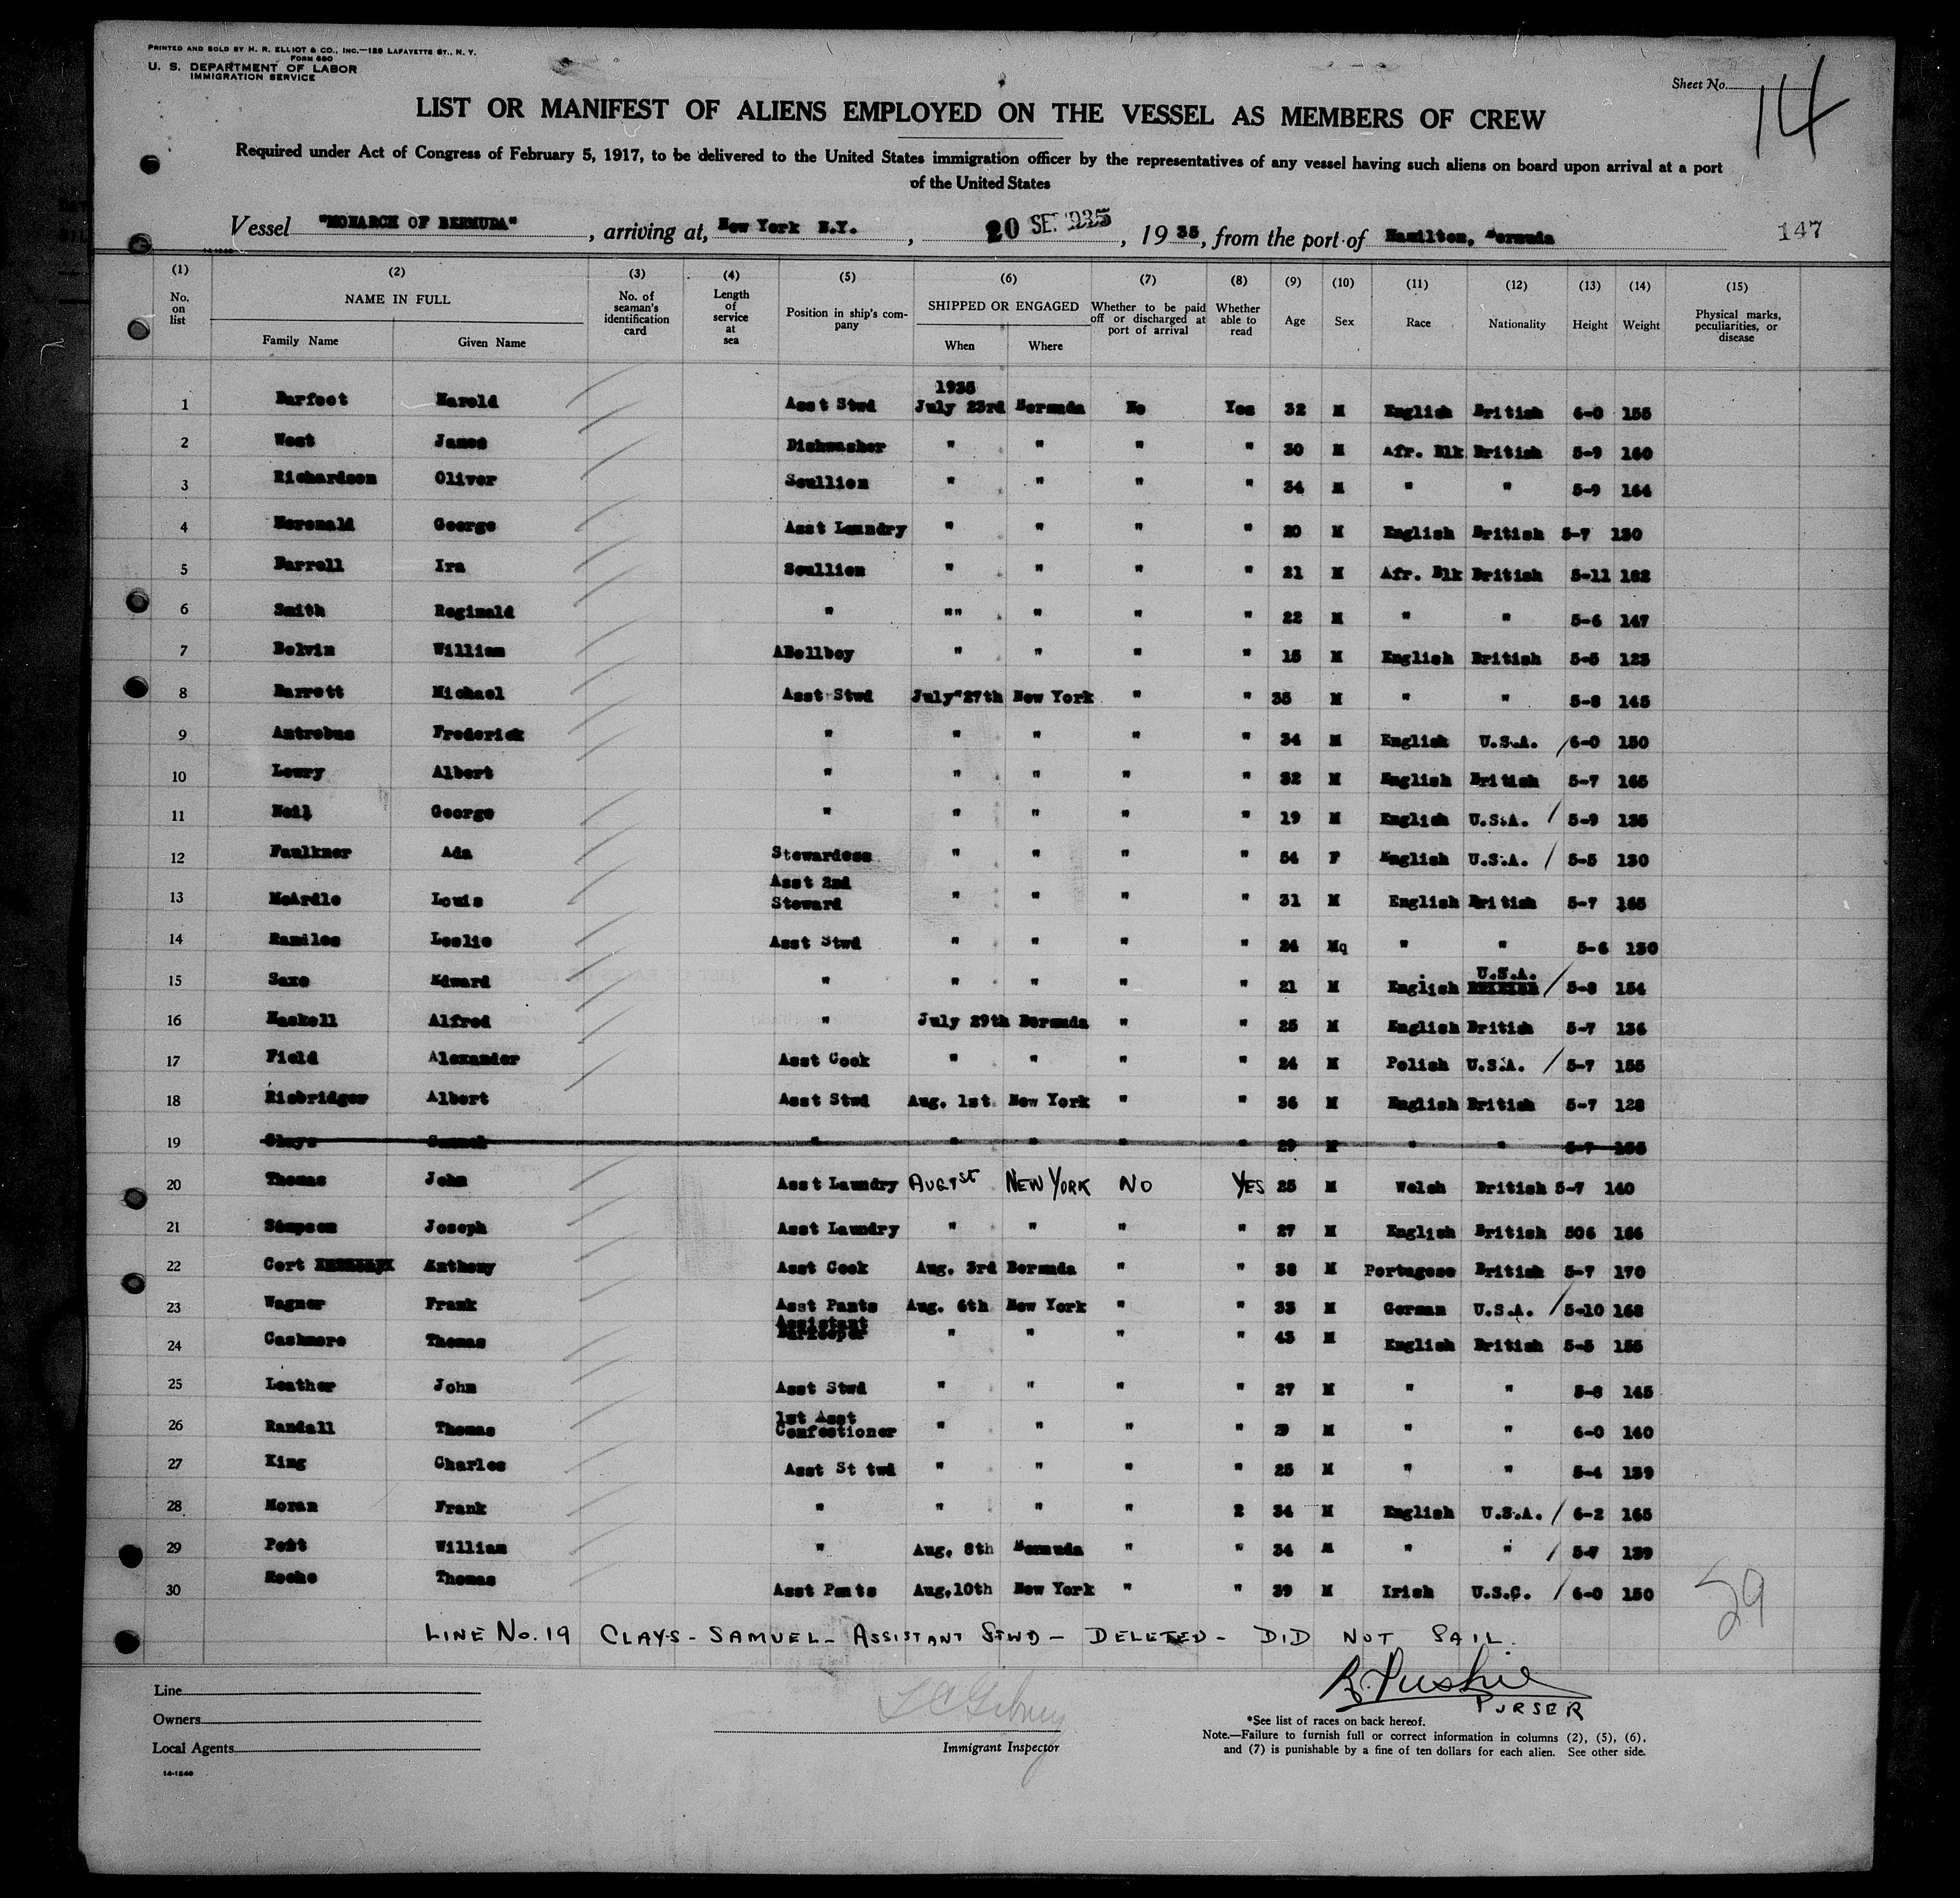 PRINTED AND SOLD BY H. R. ELLIOT & CO., INC.—129 LAFAYETTE ST., N. Y.
FORM 680
U. S. DEPARTMENT OF LABOR
IMMIGRATION SERVICE
Sheet No. 14
LIST OR MANIFEST OF ALIENS EMPLOYED ON THE VESSEL AS MEMBERS OF CREW
Required under Act of Congress of February 5, 1917, to be delivered to the United States immigration officer by the representatives of any vessel having such aliens on board upon arrival at a port
of the United States
Vessel "MONARCH OF BERMUDA", arriving at, New York N.Y., 20 SEP 1935, 1935, from the port of Hamilton, Bermuda 147
(1) (2) (3) (4) (5) (6) (7) (8) (9) (10) (11) (12) (13) (14) (15)
No. on list NAME IN FULL Family Name Given Name No. of seaman's identification card Length of service at sea Position in ship's company SHIPPED OR ENGAGED When Where Whether to be paid off or discharged at port of arrival Whether able to read Age Sex Race Nationality Height Weight Physical marks, peculiarities, or disease
1935
1 Barfoot Harold Asst Stwd July 23rd Bermuda No Yes 32 M English British 6-0 155
2 West James Dishwasher " " " " 30 M Afr. Blk British 5-9 160
3 Richardson Oliver Scullion " " " " 34 M " " 5-9 164
4 George Asst Laundry " " " " 20 M English British 5-7 130
5 Darrell Ira Scullion " " " " 21 M Afr. Blk British 5-11 182
6 Smith Reginald " "" " " " 22 M " " 5-6 147
7 Bolvin William ABellboy " " " " 15 M English British 5-5 123
8 Barrett Michael Asst Stwd July"27th New York " " 35 M " " 5-8 145
9 Antrobus Frederick " " " " " 34 M English U.S.A. / 6-0 150
10 Lowry Albert " " " " " 32 M English British 5-7 165
11 Neil George " " " " " 19 M English U.S.A. / 5-9 135
12 Faulkner Ada Stewardess " " " " 54 F English U.S.A. / 5-5 130
13 McArdle Louis Asst 2nd Steward " " " " 31 M English British 5-7 165
14 Ramiles Leslie Asst Stwd " " " " 24 Mq " " 5-6 130
15 Saxe Edward " " " " " 21 M English U.S.A. / 5-8 154
16 Haskell Alfred " July 29th Bermuda " " 25 M English British 5-7 136
17 Field Alexander Asst Cook " " " " 24 M Polish U.S.A. / 5-7 155
18 Risbridger Albert Asst Stwd Aug. 1st New York " " 36 M English British 5-7 128
19 Clays Samuel " " " " " 29 M " " 5-7 155
20 Thomas John Asst Laundry AUGT 1st NEW YORK NO YES 25 M Welsh British 5-7 140
21 Simpson Joseph Asst Laundry " " " " 27 M English British 506 166
22 Cort Anthony Asst Cook Aug. 3rd Bermuda " " 38 M Portugese British 5-7 170
23 Wagner Frank Asst Pants Aug. 6th New York " " 33 M German U.S.A. / 5-10 168
24 Cashmore Thomas Assistant Barkeeper " " " " 43 M English British 5-5 155
25 Leather John Asst Stwd " " " " 27 M " " 5-8 145
26 Randall Thomas 1st Asst Confectioner " " " " 29 M " " 6-0 140
27 King Charles Asst St twd " " " " 25 M " " 5-4 139
28 Moran Frank " " " " 2 34 M English U.S.A. / 6-2 165
29 Pett William " Aug. 8th Bermuda " " 34 M " " / 5-7 139
30 Roche Thomas Asst Pants Aug,10th New York " " 39 M Irish U.S.C. / 6-0 150
29
LINE No. 19 CLAYS - SAMUEL - ASSISTANT STWD - DELETED - DID NOT SAIL.
PURSER
Line
Owners
Local Agents
14-1240
Immigrant Inspector
*See list of races on back hereof.
Note.—Failure to furnish full or correct information in columns (2), (5), (6),
and (7) is punishable by a fine of ten dollars for each alien. See other side.